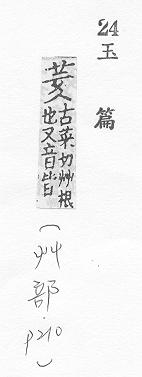 24
玉篇
荄古莱切艸根
也又音皆
(艸部.p210)